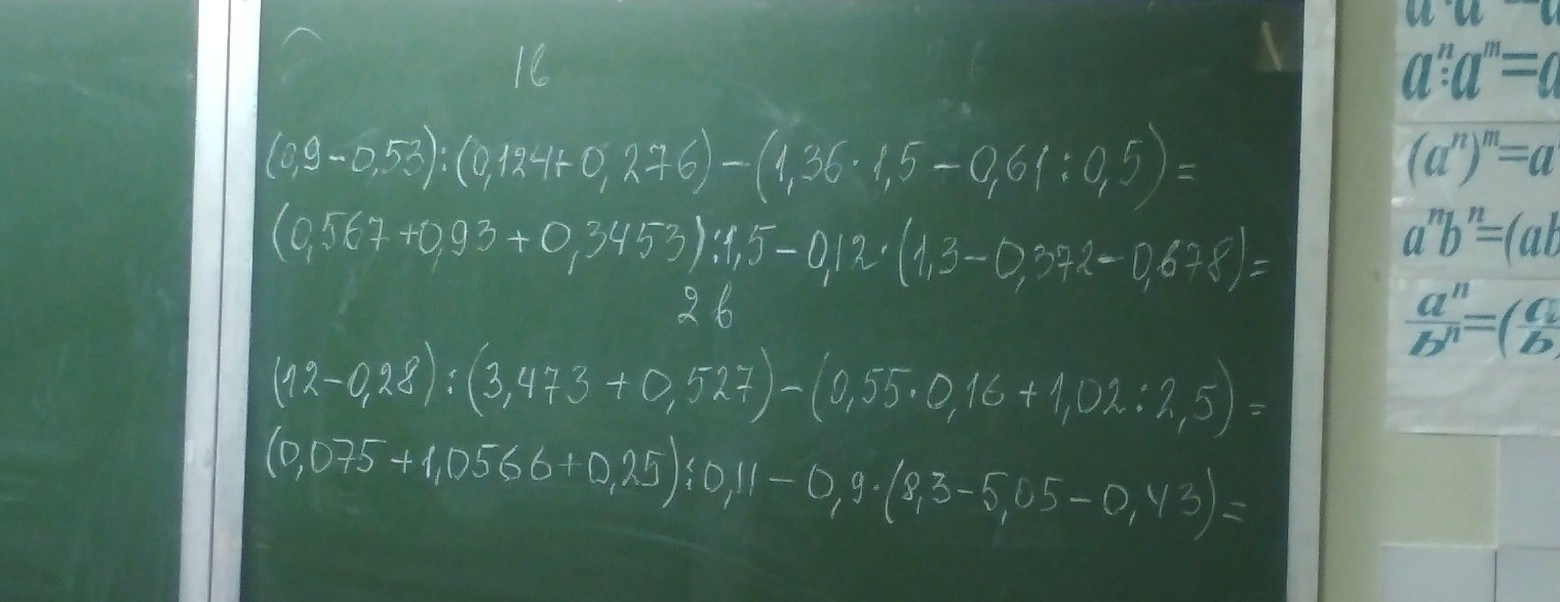 1в
(0,9-0,53):(0,124+0,276)-(1,36·1,5-0,61:0,5)=
(0,567+0,93+0,3453):1,5-0,12·(1,3-0,372-0,678)=
2в
(12-0,28):(3,473+0,527)-(0,55·0,16+1,02:2,5)=
(0,075+1,0566+0,25):0,11-0,9·(8,3-5,05-0,43)=
aⁿ:aᵐ=a
(aⁿ)ᵐ=a
aⁿbⁿ=(ab
aⁿ/bⁿ=(a/b